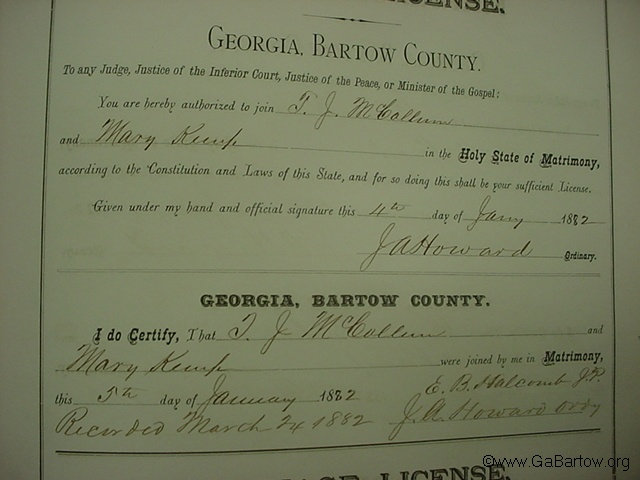 LICENSE.
GEORGIA, BARTOW COUNTY.
To any Judge, Justice of the Inferior Court, Justice of the Peace, or Minister of the Gospel:
You are hereby authorized to join T. J. McCollum
and Mary Kemp in the Holy State of Matrimony,
according to the Constitution and Laws of this State, and for so doing this shall be your sufficient License.
Given under my hand and official signature this 4th day of Jany 1882
J A Howard Ordinary.
GEORGIA, BARTOW COUNTY.
I do Certify, That T. J McCollum and
Mary Kemp were joined by me in Matrimony,
this 5th day of January 1882 E. B. Halcomb J.P.
Recorded March 24 1882 J. A. Howard Ordy
LICENSE.
©www.GaBartow.org